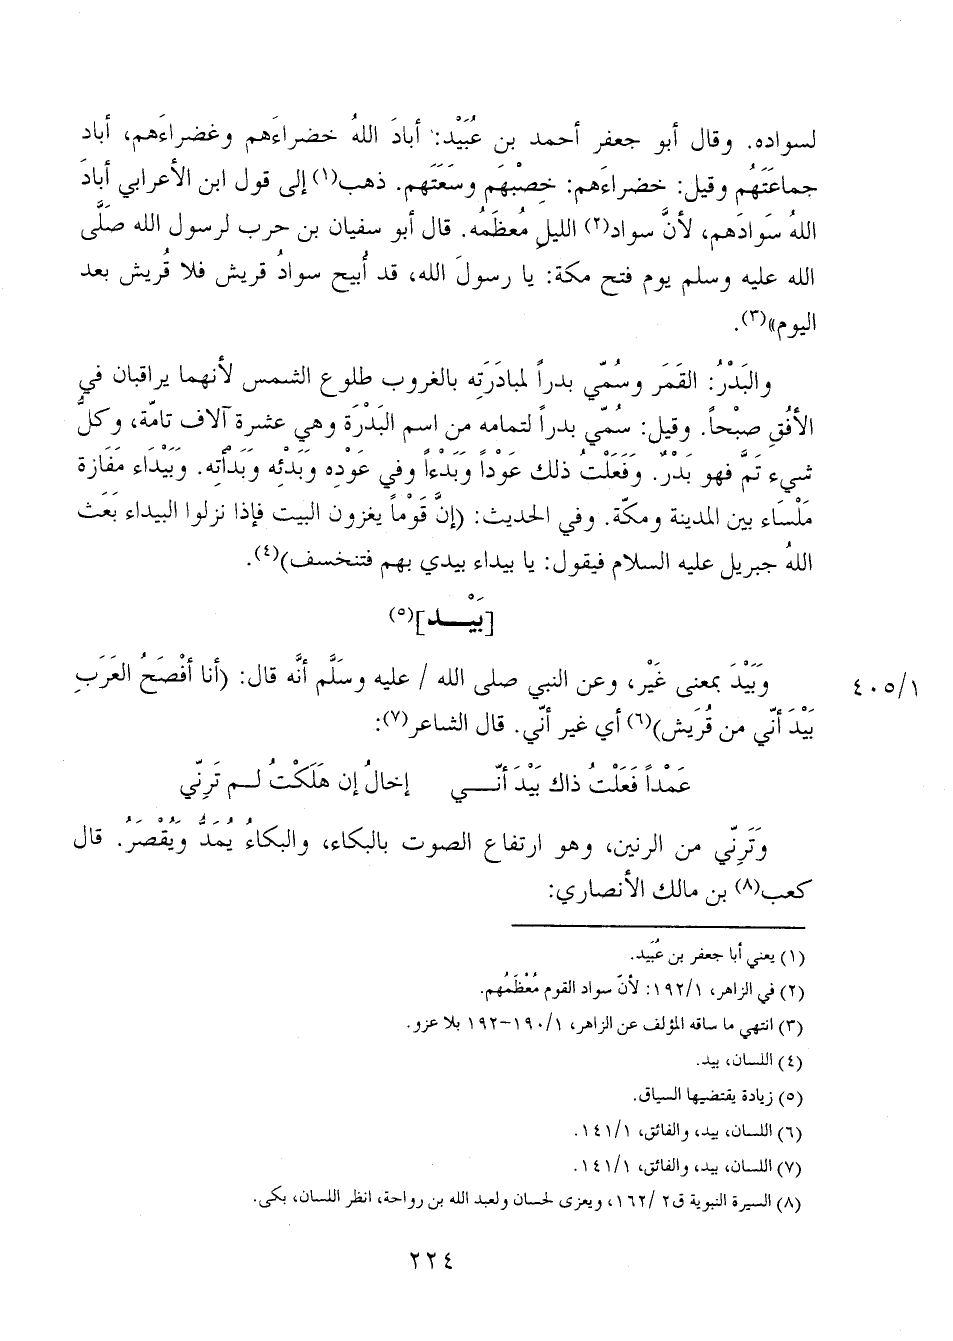 لسواده. وقال أبو جعفر أحمد بن عُبَيْد: أبادَ اللهُ خضراءَهم وغضراءَهم، أباد
جماعَتَهُم وقيل: خضراءَهم: خِصْبَهُم وسَعَتَهم. ذهب(١) إلى قول ابن الأعرابي أبادَ
اللهُ سَوادَهم، لأنَّ سواد(٢) الليلِ مُعظَمُه. قال أبو سفيان بن حرب لرسول الله صَلَّى
الله عليه وسلم يوم فتح مكة: يا رسولَ الله، قد أُبيح سوادُ قريش فلا قُريش بعد
اليوم»(٣).
والبَدْرُ: القَمَر وسُمّي بدراً لمبادَرَتِه بالغروب طلوع الشمس لأنهما يراقبان في
الأفُقِ صبْحاً. وقيل: سُمّي بدراً لتمامه من اسم البَدْرَة وهي عشرة آلاف تامّة، وكلُّ
شيء تَمَّ فهو بَدْرٌ. وَفَعَلْتُ ذلك عَوْداً وَبَدْءاً وفي عَوْدِه وَبَدْئِه وَبَدْأتِه. وَبَيْدَاء مَفَازة
مَلْسَاء بين المدينة ومكّة. وفي الحديث: (إنَّ قَوْماً يغزون البيت فإذا نزلوا البيداء بَعَث
اللهُ جبريل عليه السلام فيقول: يا بيداء بيدي بهم فتنخسف)(٤).
[بَيْـــد](٥)
وَبَيْدَ بمعنى غَيْر، وعن النبي صلى الله / عليه وسَلَّم أنَّه قال: (أنا أفْصَحُ العَرَبِ ٤٠٥/١
بَيْدَ أنّي من قُرَيش)(٦) أي غير أنّي. قال الشاعر(٧):
عَمْداً فَعَلْتُ ذاك بَيْدَ أنّـــي إخالُ إن هَلَكْتُ لـم تَرِنّي
وَتَرِنّي من الرنين، وهو ارتفاع الصوت بالبكاء، والبكاءُ يُمَدُّ وَيُقْصَرُ. قال
كعب(٨) بن مالك الأنصاري:
(١) يعني أبا جعفر بن عُبَيد.
(٢) في الزاهر، ١٩٢/١: لأنّ سواد القوم مُعْظَمُهم.
(٣) انتهي ما ساقه المؤلف عن الزاهر، ١٩٠/١-١٩٢ بلا عزو.
(٤) اللسان، بيد.
(٥) زيادة يقتضيها السياق.
(٦) اللسان، بيد، والفائق، ١٤١/١.
(٧) اللسان، بيد، والفائق، ١٤١/١.
(٨) السيرة النبوية ق٢ /١٦٢، ويعزى لحسان ولعبد الله بن رواحة، انظر اللسان، بكى.
٢٢٤